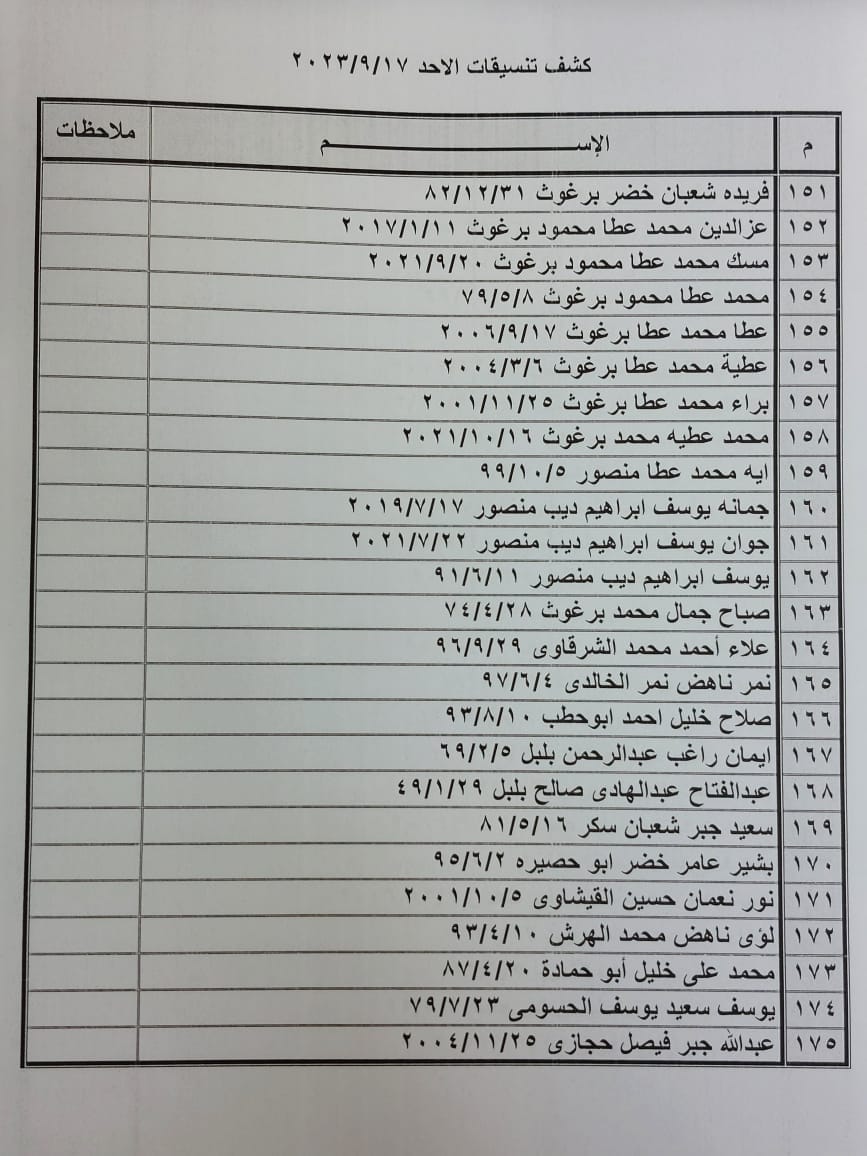 كشف تنسيقات الاحد ٢٠٢٣/٩/١٧
م الإســـــــــــــــــــــــم ملاحظات
١٥١ فريده شعبان خضر برغوث ٨٢/١٢/٣١
١٥٢ عزالدين محمد عطا محمود برغوث ٢٠١٧/١/١١
١٥٣ مسك محمد عطا محمود برغوث ٢٠٢١/٩/٢٠
١٥٤ محمد عطا محمود برغوث ٧٩/٥/٨
١٥٥ عطا محمد عطا برغوث ٢٠٠٦/٩/١٧
١٥٦ عطية محمد عطا برغوث ٢٠٠٤/٣/٦
١٥٧ براء محمد عطا برغوث ٢٠٠١/١١/٢٥
١٥٨ محمد عطيه محمد برغوث ٢٠٢١/١٠/١٦
١٥٩ ايه محمد عطا منصور ٩٩/١٠/٥
١٦٠ جمانه يوسف ابراهيم ديب منصور ٢٠١٩/٧/١٧
١٦١ جوان يوسف ابراهيم ديب منصور ٢٠٢١/٧/٢٢
١٦٢ يوسف ابراهيم ديب منصور ٩١/٦/١١
١٦٣ صباح جمال محمد برغوث ٧٤/٤/٢٨
١٦٤ علاء أحمد محمد الشرقاوى ٩٦/٩/٢٩
١٦٥ نمر ناهض نمر الخالدى ٩٧/٦/٤
١٦٦ صلاح خليل احمد ابوحطب ٩٣/٨/١٠
١٦٧ ايمان راغب عبدالرحمن بلبل ٦٩/٢/٥
١٦٨ عبدالفتاح عبدالهادى صالح بلبل ٤٩/١/٢٩
١٦٩ سعيد جبر شعبان سكر ٨١/٥/١٦
١٧٠ بشير عامر خضر ابو حصيره ٩٥/٦/٢
١٧١ نور نعمان حسين القيشاوى ٢٠٠١/١٠/٥
١٧٢ لؤى ناهض محمد الهرش ٩٣/٤/١٠
١٧٣ محمد على خليل أبو حمادة ٨٧/٤/٢٠
١٧٤ يوسف سعيد يوسف الحسومى ٧٩/٧/٢٣
١٧٥ عبدالله جبر فيصل حجازى ٢٠٠٤/١١/٢٥